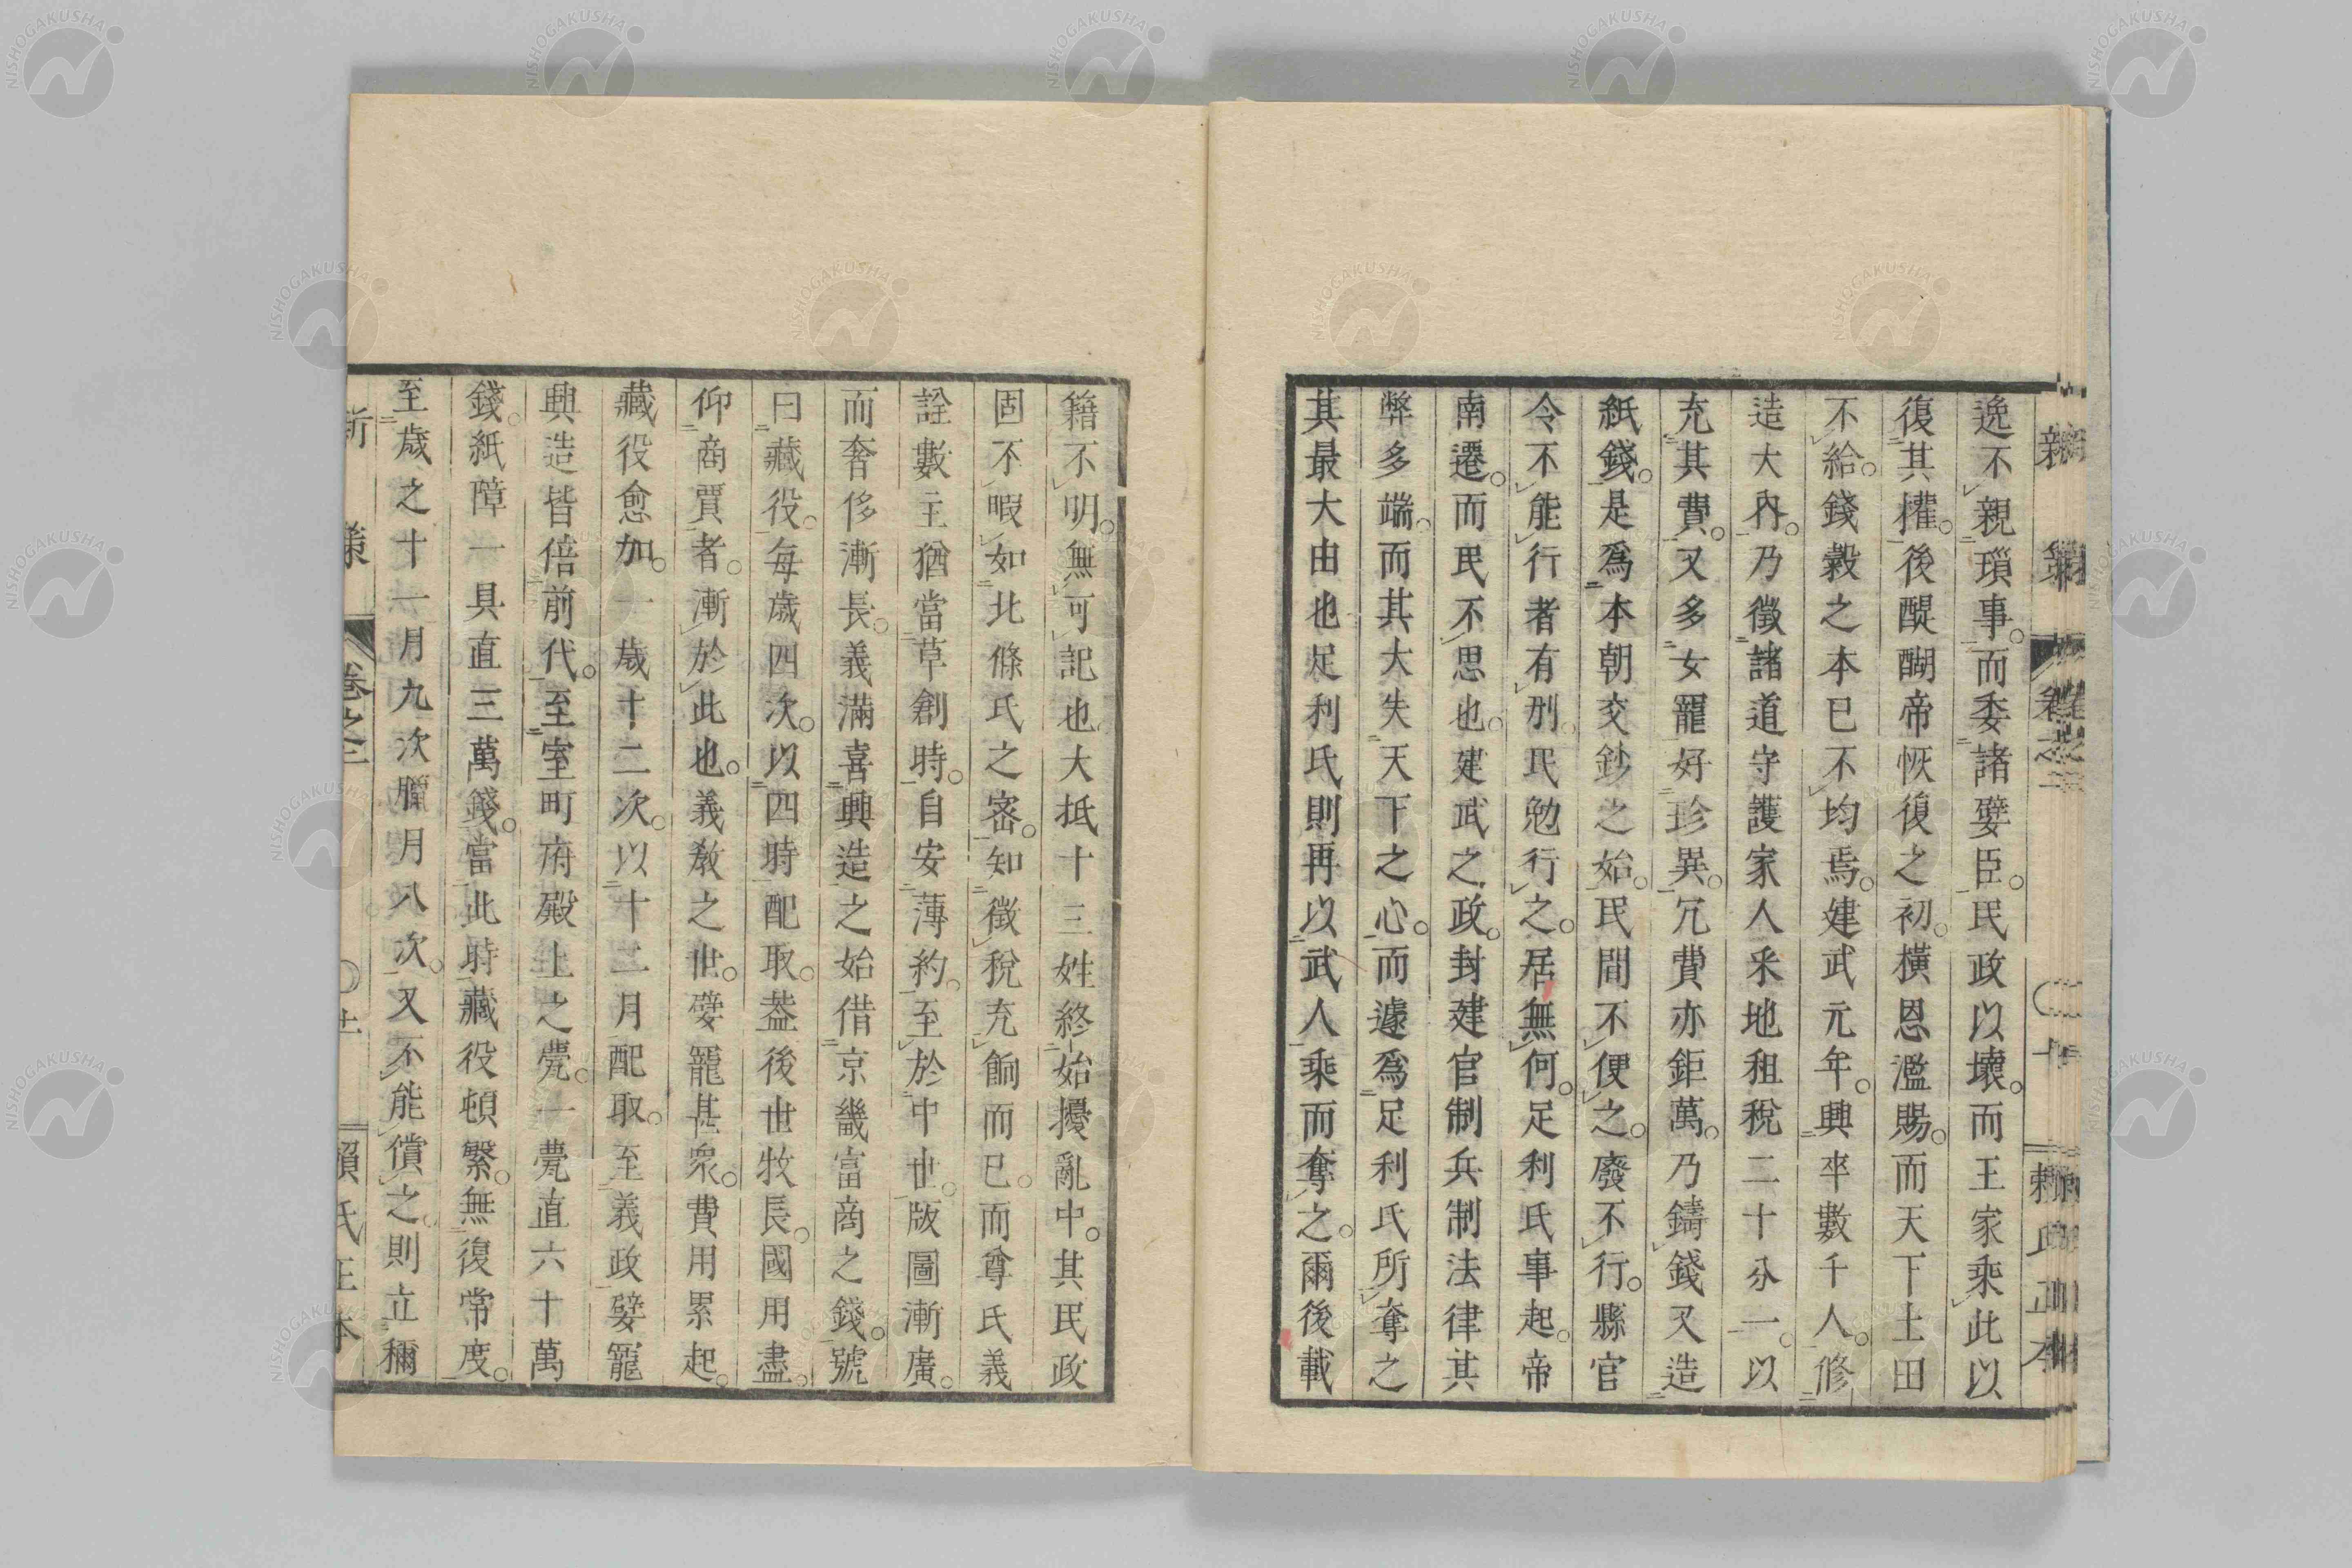 逸不親瑣事。而委諸嬖臣。民政以壞。而王家乘此以
復其權。後醍醐帝恢復之初。橫恩濫賜。而天下土田
不給。錢穀之本已不均焉。建武元年。興卒數千人。修
造大內。乃徵諸道守護家人釆地租稅二十分一。以
充其費。又多女寵好珍異。冗費亦鉅萬。乃鑄錢又造
紙錢。是爲本朝交鈔之始。民間不便之。廢不行。縣官
令不能行者有刑。民勉行之。居無何。足利氏事起。帝
南遷。而民不思也。建武之政。封建官制兵制法律其
弊多端。而其大失天下之心。而遽爲足利氏所奪之
其最大由也足利氏則再以武人乘而奪之。爾後載
籍不明。無可記也大抵十三姓終始擾亂中。其民政
固不暇如北條氏之密。知徵稅充餉而已。而尊氏義
詮數主猶當草創時。自安薄約。至於中世。版圖漸廣。
而奢侈漸長。義滿喜興造之始借京畿富商之錢。號
曰藏役。每歲四次。以四時配取。葢後世牧長。國用盡。
仰商賈者。漸於此也。義敎之世。嬖寵甚衆。費用累起。
藏役愈加。一歲十二次。以十二月配取。至義政嬖寵
興造皆倍前代。至室町府殿上之甍。一甍直六十萬
錢。紙障一具直三萬錢。當此時藏役頓繁。無復常度。
至歲之十一月九次臘月八次。又不能償之。則立稱
卷之二
賴氏正本
NISHOGAKUSHA